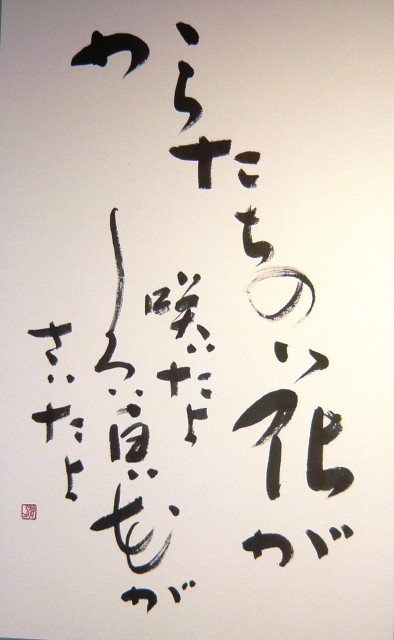 からたちの花が
咲いたよ
しろい白い花が
さいたよ